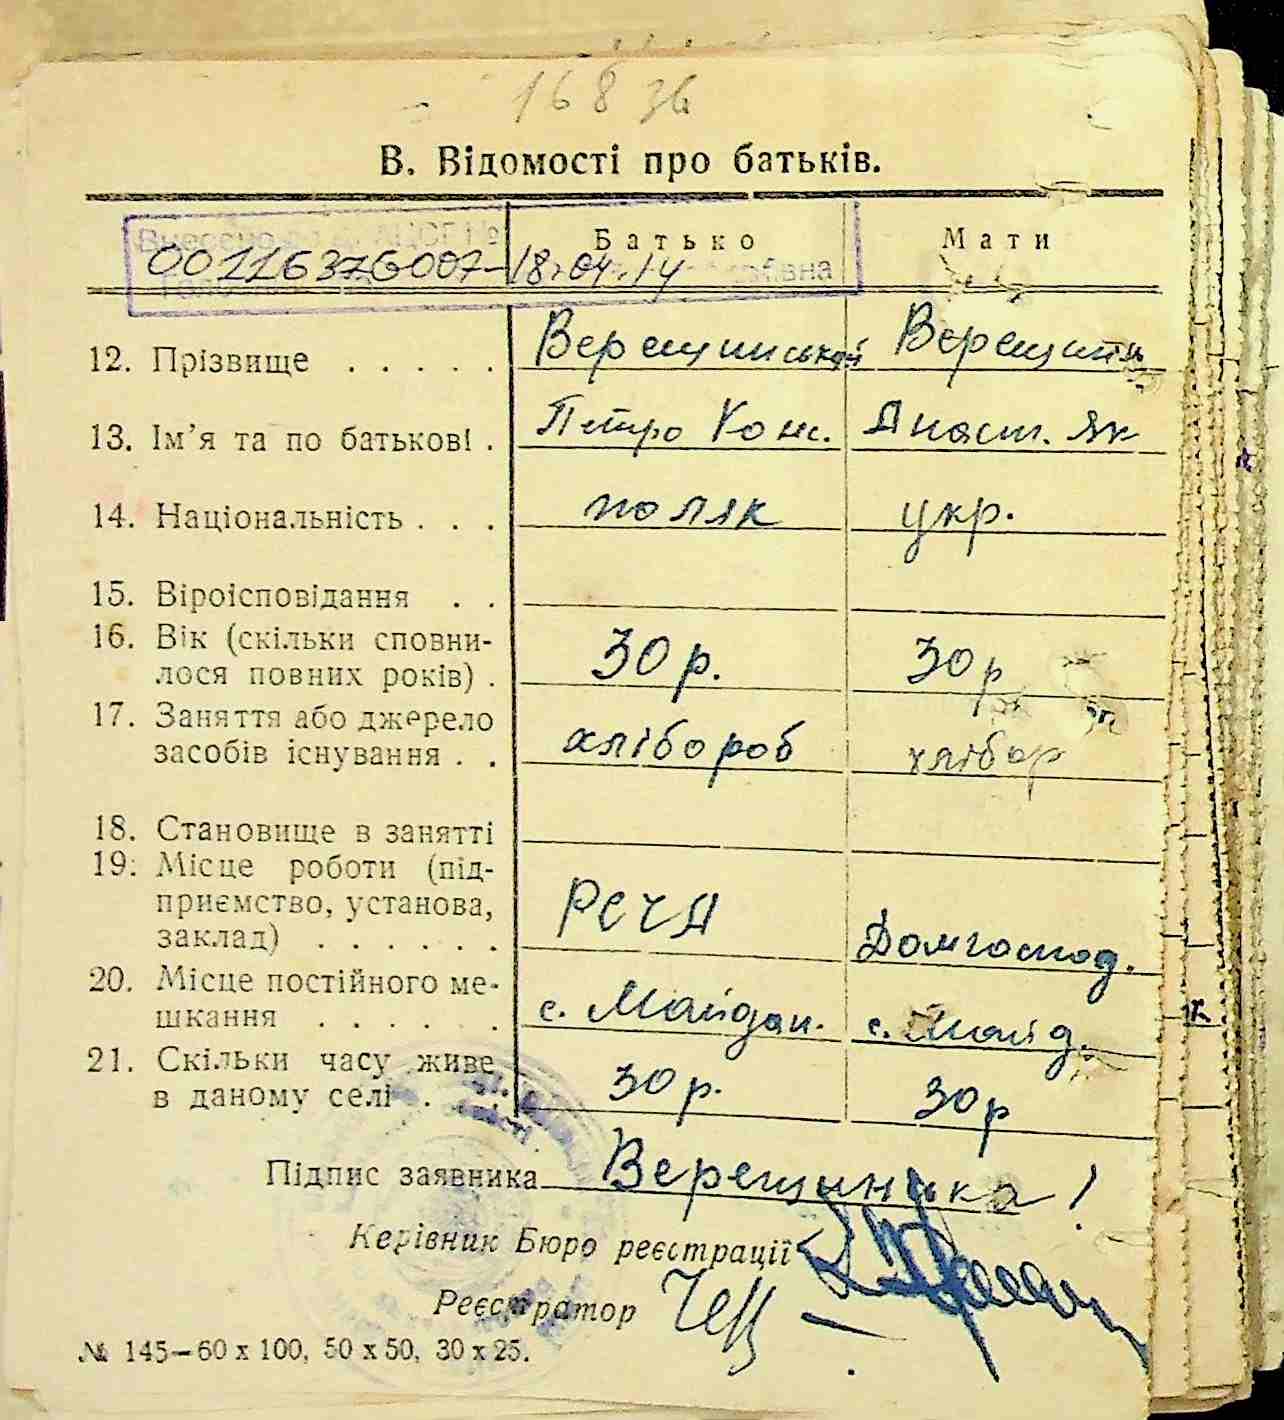 168 зв
В. Відомості про батьків.
Батько Мати
00116376007-18.04.14
12. Прізвище . . . . . Верещинський Верещинсь
13. Ім’я та по батькові . Петро Конс. Анаст. Як
14. Національність . . . поляк укр.
15. Віроісповідання . .
16. Вік (скільки сповни-
лося повних років) . 30 р. 30 р
17. Заняття або джерело
засобів існування . . хлібороб хлібор
18. Становище в занятті
19. Місце роботи (під-
приємство, установа,
заклад) . . . . . . РСЧА Домгоспод.
20. Місце постійного ме-
шкання . . . . . . с. Майдан. с. Майд.
21. Скільки часу живе
в даному селі . . . 30 р. 30 р
Підпис заявника Верещинська !
Керівник Бюро реєстрації
Реєстратор
№ 145—60 х 100, 50 х 50, 30 х 25.